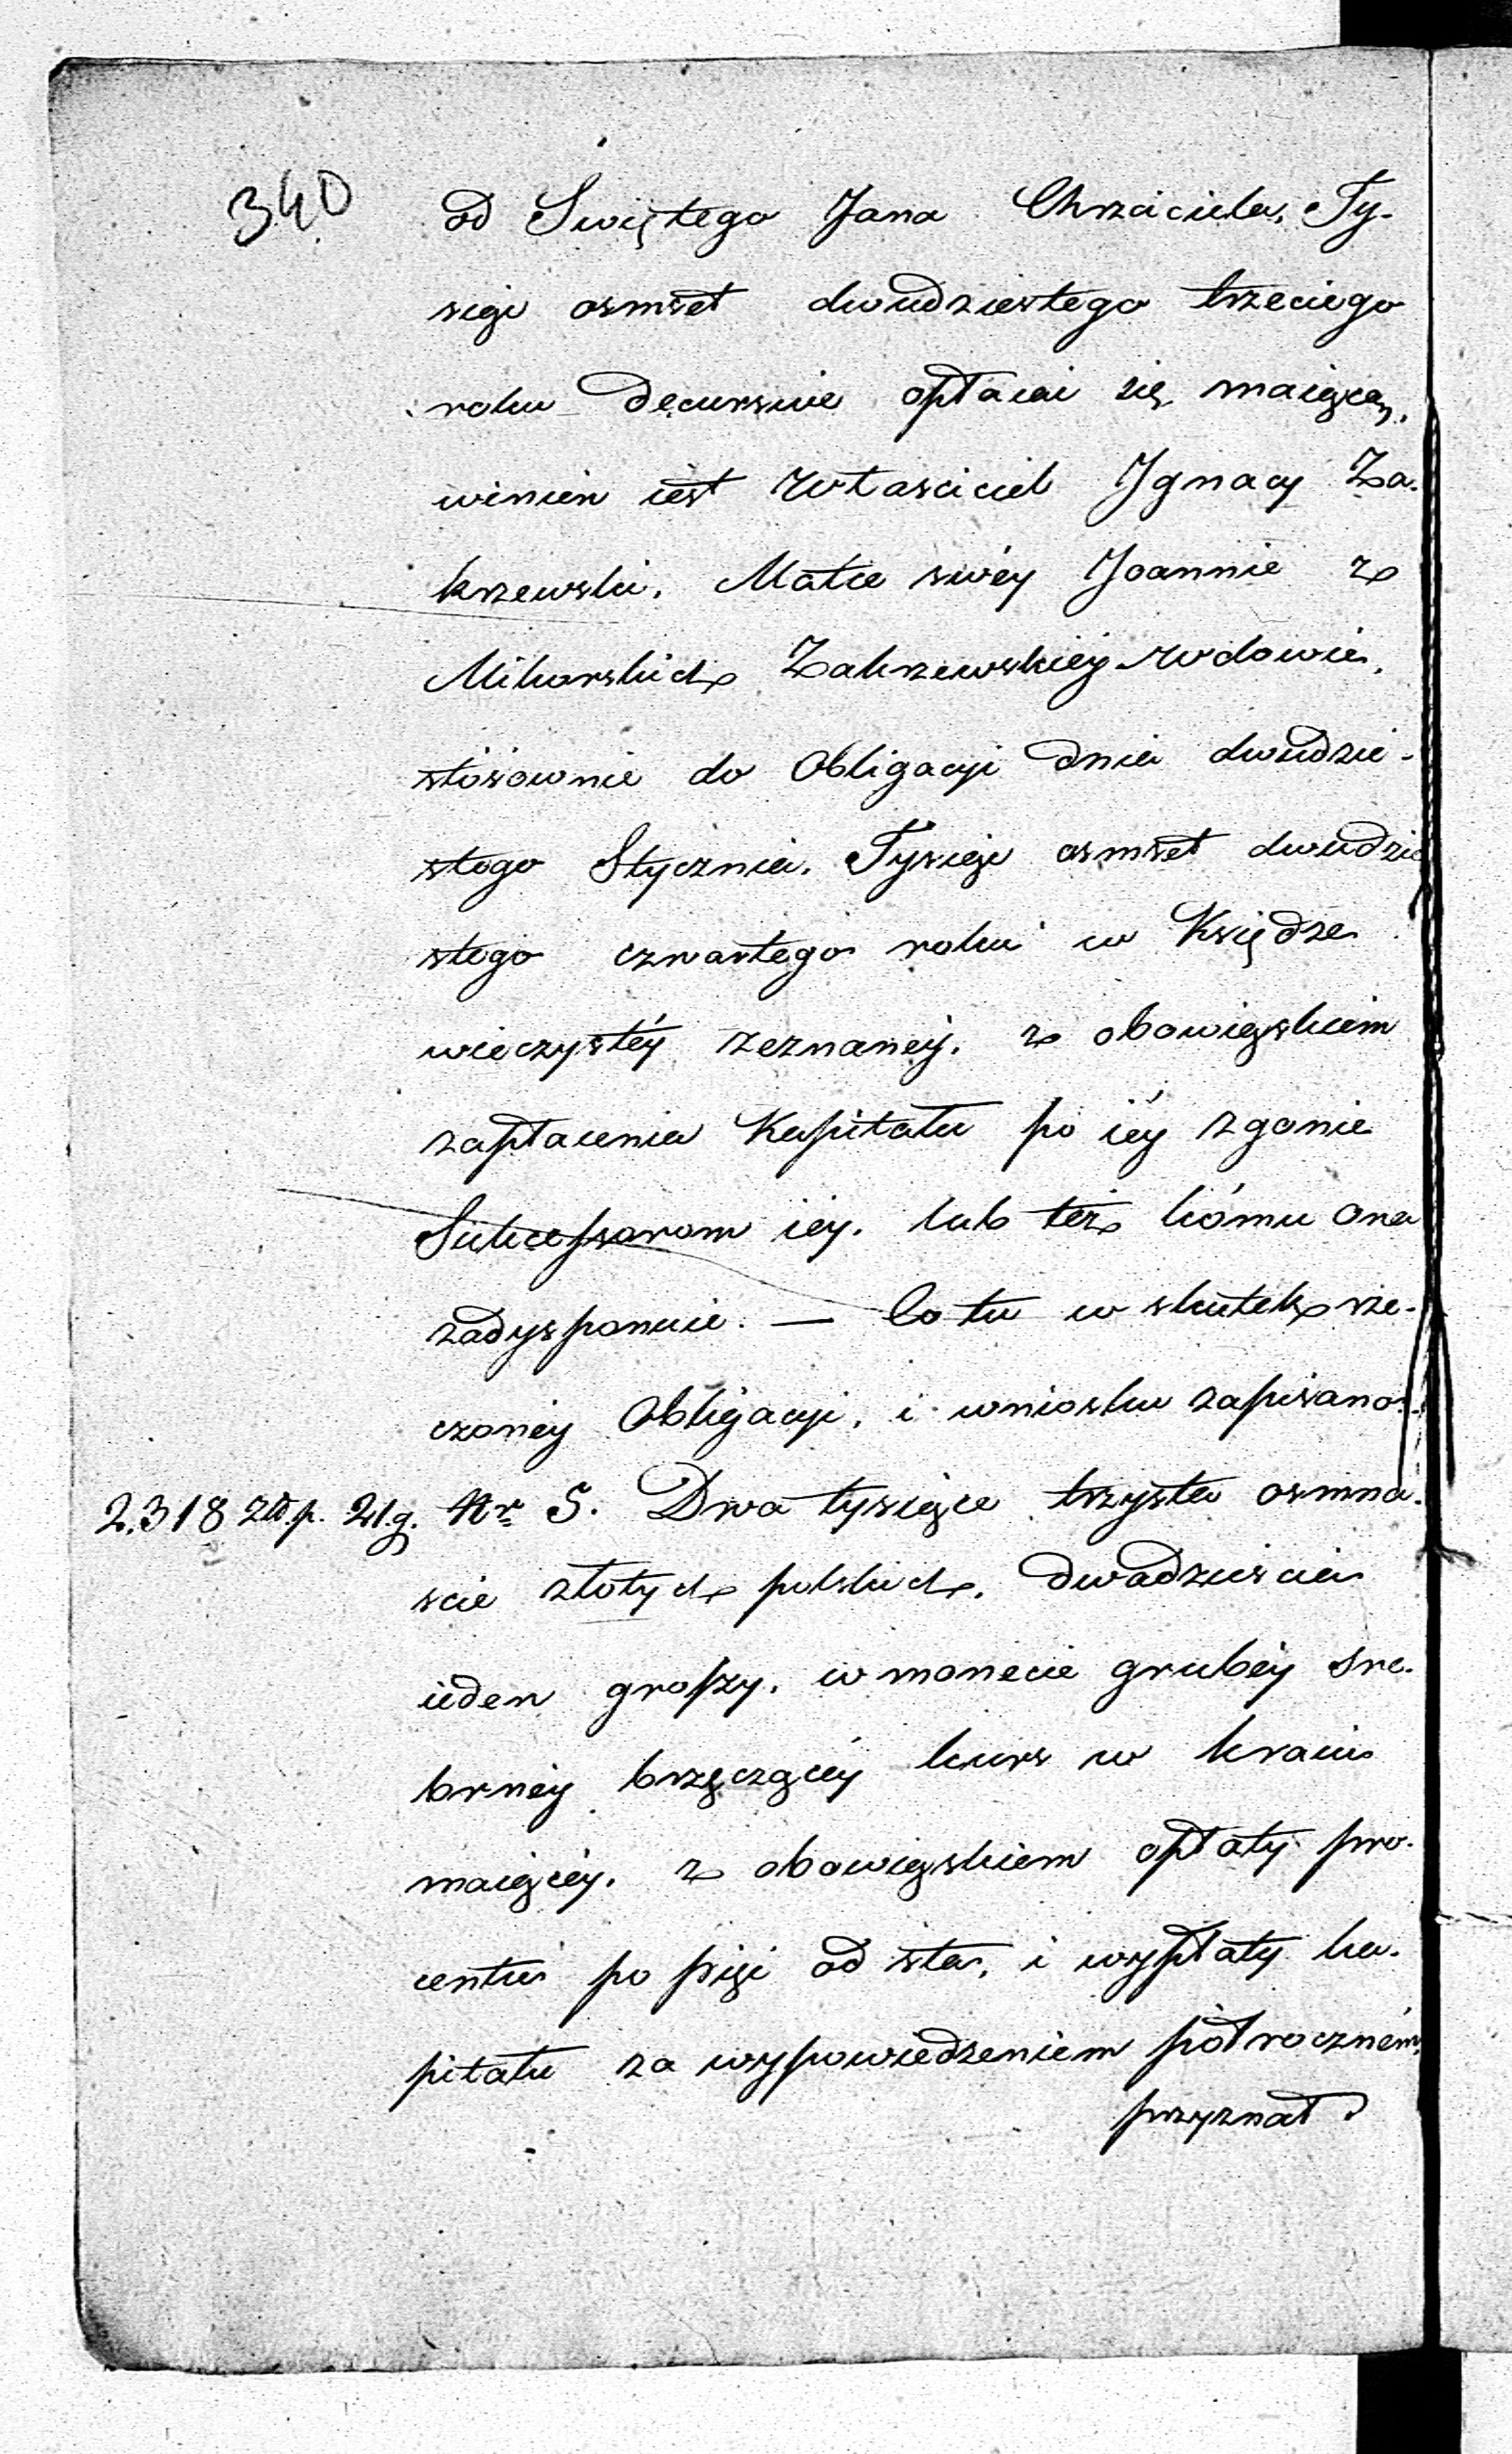 340
od Swiętego Jana Chrzciciela, Ty-
siąc osmset dwudziestego trzeciego
roku decursive opłacać się maiącą,
winien iest Własciciel Ignacy Za-
krzewski, Matce swéy Joannie z
Mikorskich Zakrzewskiéy wdowie,
stósownie do Obligacyi dnia dwudzie-
stego Stycznia, Tysiąc osmset dwudzie
stego czwartego roku w Księdze
wieczystéy zeznanéy, z obowiązkiem
zapłacenia Kapitału po iéy zgonie
Sukcessorom iéy, lub téż kómu ona
zadysponuie. — Co tu w skutek rze-
czonéy Obligacyi, i wniosku zapisano.
2,318 złp. 21.g. Nr. 5. Dwa tysiące trzysta osmna-
scie złotych polskich, dwadziescia
ieden groszy, w monecie grubéy sre-
brnéy brzęczącéy kurs w kraiu
maiącéy, z obowiązkiem opłaty pro-
centu po pięć od sta, i wypłaty ka-
pitału za wypowiedzeniem półroczném,
przyznał